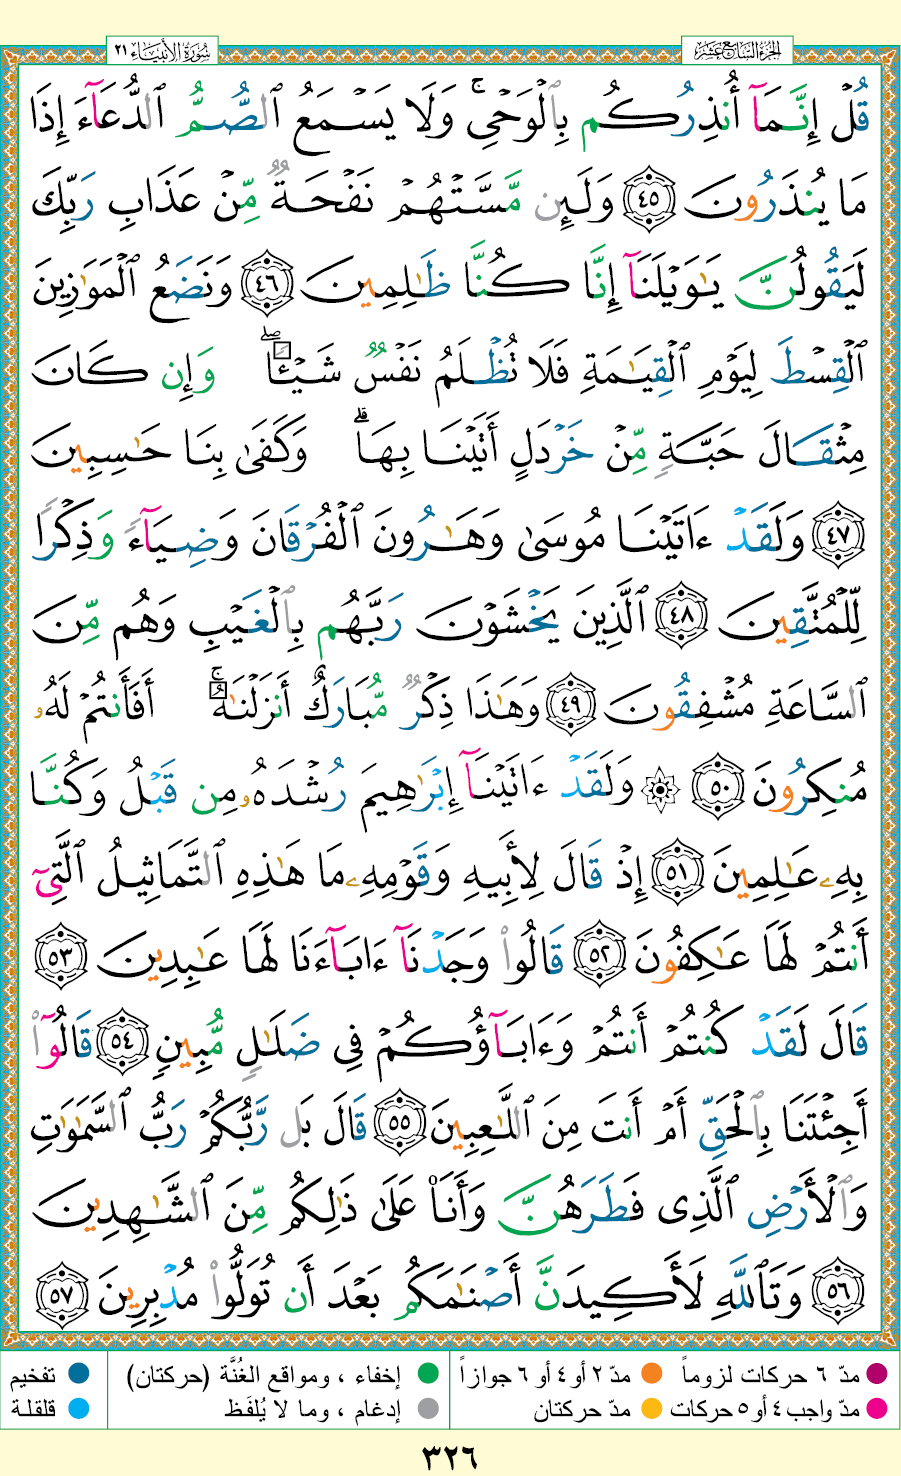 سُورَةُ الأَنبِيَاء ٢١ الجُزْءُ السَّابِعَ عَشَر
قُلۡ إِنَّمَآ أُنذِرُكُم بِٱلۡوَحۡيِۚ وَلَا يَسۡمَعُ ٱلصُّمُّ ٱلدُّعَآءَ إِذَا
مَا يُنذَرُونَ ٤٥ وَلَئِن مَّسَّتۡهُمۡ نَفۡحَةٞ مِّنۡ عَذَابِ رَبِّكَ
لَيَقُولُنَّ يَٰوَيۡلَنَآ إِنَّا كُنَّا ظَٰلِمِينَ ٤٦ وَنَضَعُ ٱلۡمَوَٰزِينَ
ٱلۡقِسۡطَ لِيَوۡمِ ٱلۡقِيَٰمَةِ فَلَا تُظۡلَمُ نَفۡسٞ شَيۡـٔٗاۖ وَإِن كَانَ
مِثۡقَالَ حَبَّةٖ مِّنۡ خَرۡدَلٍ أَتَيۡنَا بِهَاۗ وَكَفَىٰ بِنَا حَٰسِبِينَ
٤٧ وَلَقَدۡ ءَاتَيۡنَا مُوسَىٰ وَهَٰرُونَ ٱلۡفُرۡقَانَ وَضِيَآءٗ وَذِكۡرٗا
لِّلۡمُتَّقِينَ ٤٨ ٱلَّذِينَ يَخۡشَوۡنَ رَبَّهُم بِٱلۡغَيۡبِ وَهُم مِّنَ
ٱلسَّاعَةِ مُشۡفِقُونَ ٤٩ وَهَٰذَا ذِكۡرٞ مُّبَارَكٌ أَنزَلۡنَٰهُۚ أَفَأَنتُمۡ لَهُۥ
مُنكِرُونَ ٥٠ ۞ وَلَقَدۡ ءَاتَيۡنَآ إِبۡرَٰهِيمَ رُشۡدَهُۥ مِن قَبۡلُ وَكُنَّا
بِهِۦ عَٰلِمِينَ ٥١ إِذۡ قَالَ لِأَبِيهِ وَقَوۡمِهِۦ مَا هَٰذِهِ ٱلتَّمَاثِيلُ ٱلَّتِيٓ
أَنتُمۡ لَهَا عَٰكِفُونَ ٥٢ قَالُواْ وَجَدۡنَآ ءَابَآءَنَا لَهَا عَٰبِدِينَ ٥٣
قَالَ لَقَدۡ كُنتُمۡ أَنتُمۡ وَءَابَآؤُكُمۡ فِي ضَلَٰلٖ مُّبِينٖ ٥٤ قَالُوٓاْ
أَجِئۡتَنَا بِٱلۡحَقِّ أَمۡ أَنتَ مِنَ ٱللَّٰعِبِينَ ٥٥ قَالَ بَل رَّبُّكُمۡ رَبُّ ٱلسَّمَٰوَٰتِ
وَٱلۡأَرۡضِ ٱلَّذِي فَطَرَهُنَّ وَأَنَا۠ عَلَىٰ ذَٰلِكُم مِّنَ ٱلشَّٰهِدِينَ
٥٦ وَتَٱللَّهِ لَأَكِيدَنَّ أَصۡنَٰمَكُم بَعۡدَ أَن تُوَلُّواْ مُدۡبِرِينَ ٥٧
مدّ ٦ حركات لزوماً مدّ ٢ أو ٤ أو ٦ جوازاً إخفاء ، ومواقع الغُنَّة (حركتان) تفخيم
مدّ واجب ٤ أو ٥ حركات مدّ حركتان إدغام ، وما لا يُلفَظ قلقلة
٣٢٦